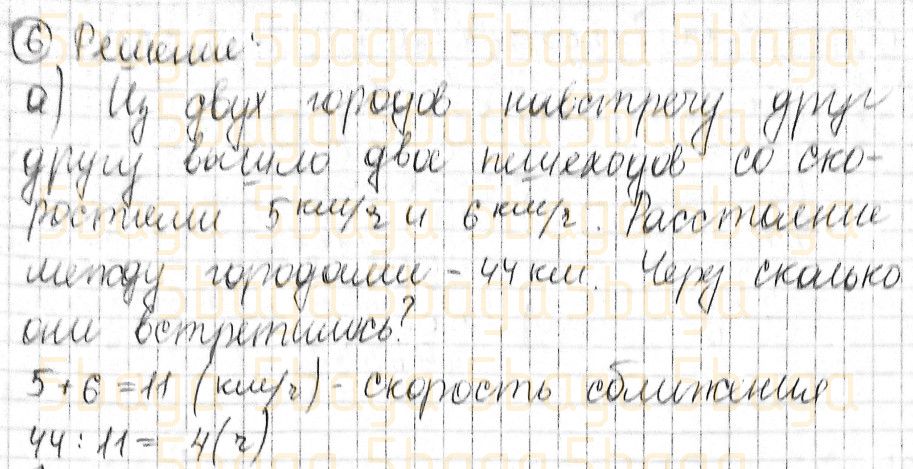 6 Решение:
а) Из двух городов навстречу друг
другу вышло двое пешеходов со ско-
ростями 5 км/ч и 6 км/ч. Расстояние
между городами - 44 км. Через сколько
они встретились?
5 + 6 = 11 (км/ч) - скорость сближения
44 : 11 = 4 (ч)